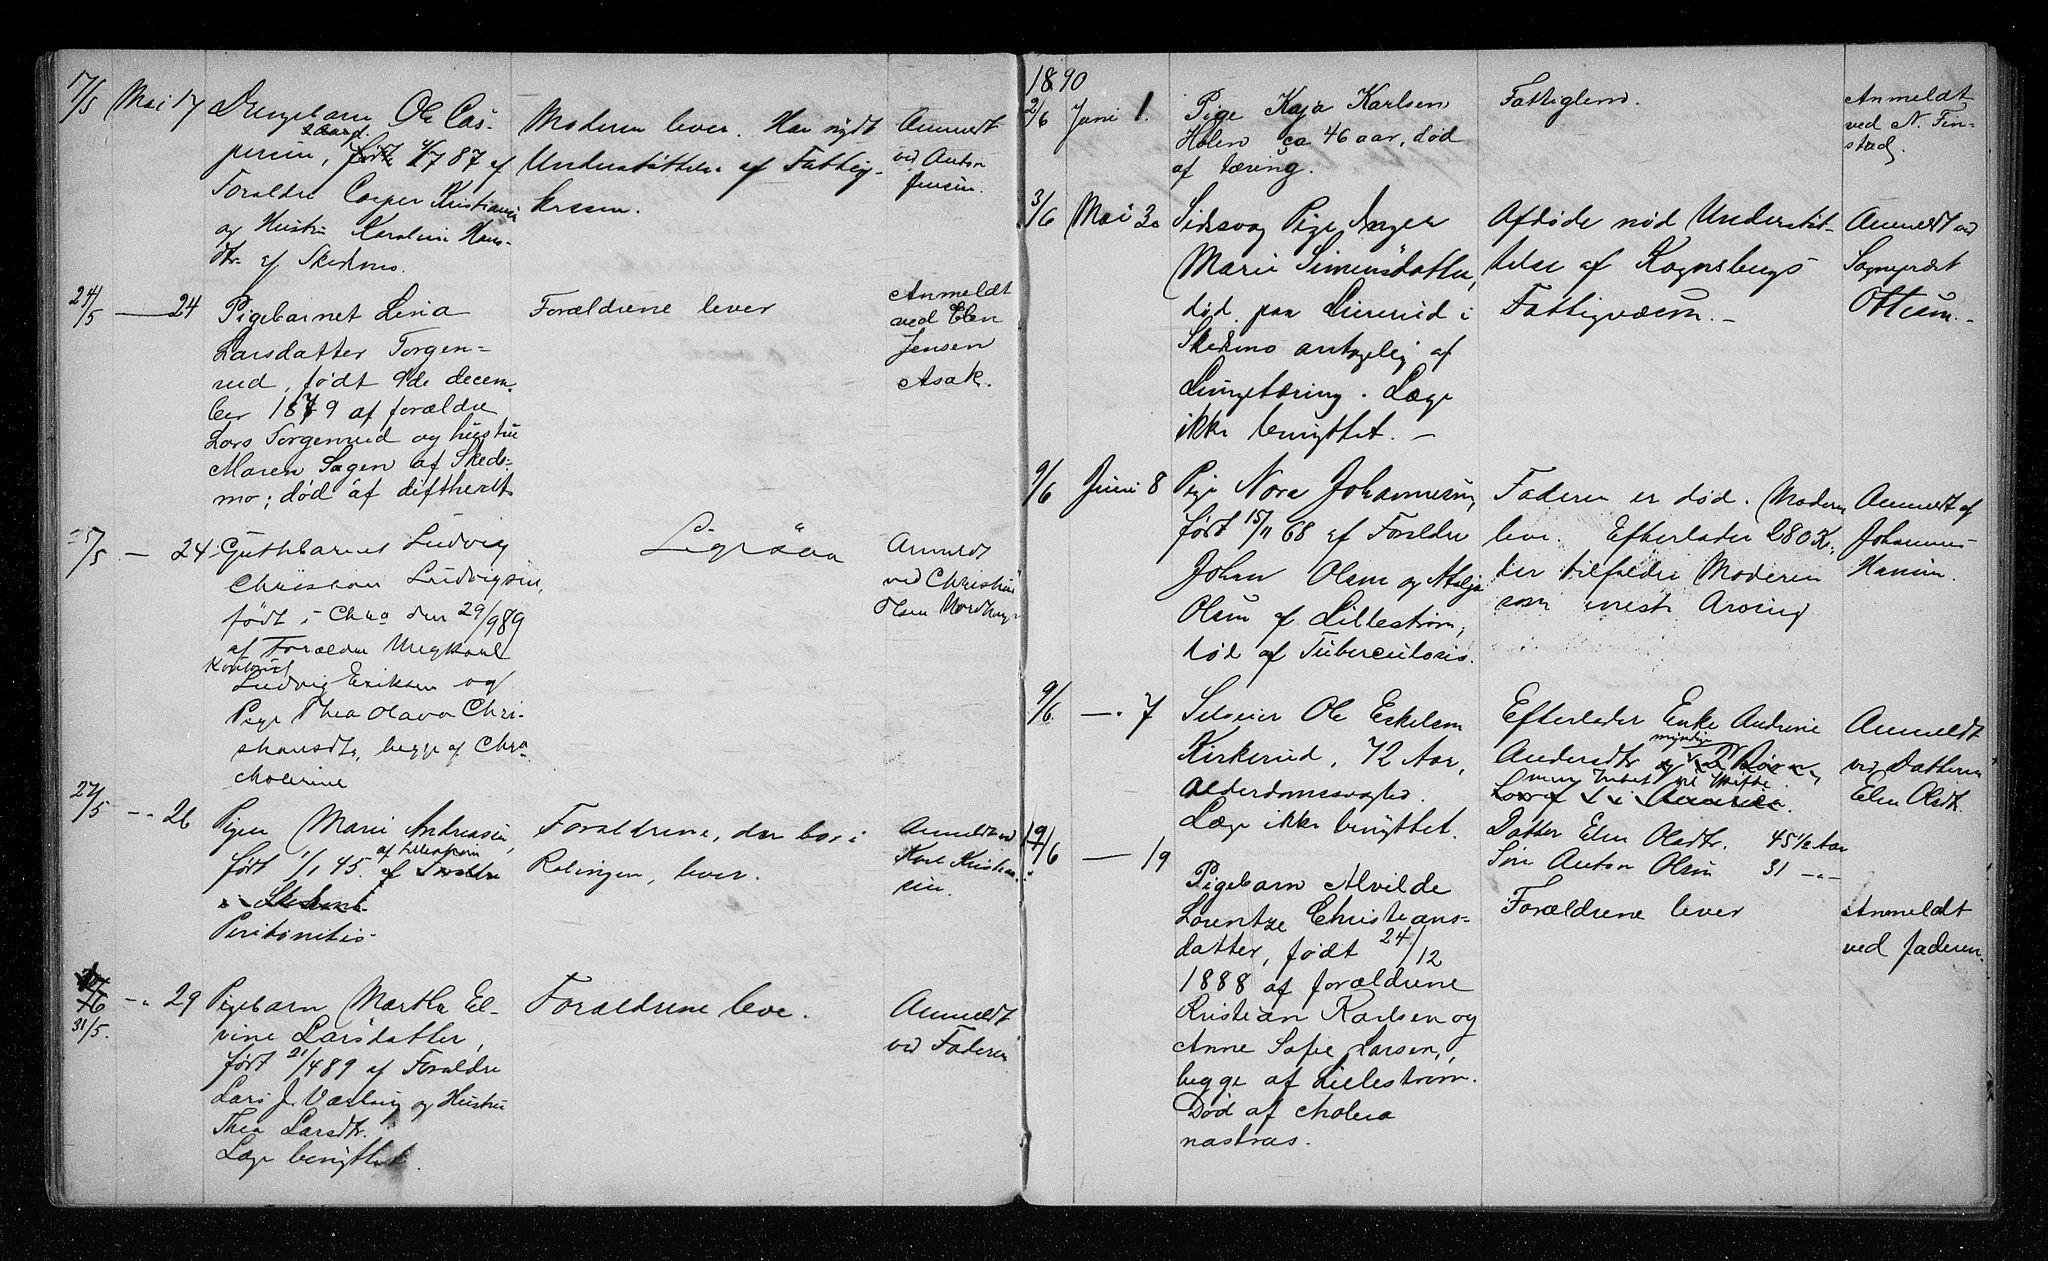 17/5 Mai 17 Drengebarn Ole Cas- Moderen lever. Har nydt Anmeldt
persen, født 4/7 87 af Understøttelse af Fattig- ved Anton
Forældre Casper Kristiansen kassen. Jensen.
og Hustru Karoline Hans-
dtr. af Skedsmo.
24/5 — 24 Pigebarnet Lina Forældrene lever Anmeldt
Larsdatter Torgen- ved Elen
rud, født 9de decem- Jensen
ber 1879 af forældre Asak.
Lars Torgenrud og hustru
Maren Sagen af Skeds-
mo; død af diftherit
25/5 — 24 Gutebarnet Ludvig Anmeldt
Christian Ludvigsen, ved Christian
født i Chra den 29/9 89 Olsen
af Forældre Ungkarl
Kontorist
Ludvig Eriksen og
Pige Thea Olava Chri-
stiansdtr, begge af Chra
cholerine
27/5 — 26 Pigen Marie Andreasen, Forældrene, der bor i Anmeldt ved
født 1/1 45. af Lillestrøm af Forældre Rælingen, lever. Karl Kristian-
i Skedsmo. sen.
Peritonitis.
31/5. — 29 Pigebarn Martha El- Forældrene leve. Anmeldt
vine Larsdatter, ved Faderen
født 21/4 89 af Forældre
Lars J. og Hustru
Thea Larsdtr.
Læge benyttet.
1890
2/6 Juni 1. Pige Kaja Karlsen Fattiglem. Anmeldt
Holen ca 46 aar, død ved N. Fin-
af tæring. stad.
3/6 Mai 30 Sindssvag Pige Inger Afdøde nød Understøt- Anmeldt ved
Marie Simensdatter, telse af Kognsbergs Sogneprest
død paa i Fattigvæsen. — Ottesen. —
Skedsmo antagelig af
Lungetæring. Læge
ikke benyttet. —
9/6 Juni 8 Pige Nora Johannesen, Faderen er død. Moderen Anmeldt af
født 15/11 68 af Forældre lever. Efterlader 280 Kr. Johannes
Johan Olsen og Atalja der tilfalder Moderen Hansen.
Olsen af Lillestrøm, som eneste Arving
død af Tuberculosis.
9/6 — 7 Selveier Ole Eskelsen Efterlader Enke Andrine Anmeldt
Kirkerud, 72 Aar, Andersdtr myndige og Børn, ved Datteren
Alderdomssvaghed. i Amerika. Elen Olsdtr.
Læge ikke benyttet. Datter Elen Olsdtr. 45 1/2 Aar
Søn Anton Olsen 31 —"—
19/6 — 19 Pigebarn Alvilde Forældrene lever Anmeldt
Lorentze Christians- ved faderen.
datter, født 24/12
1888 af forældrene
Kristian Karlsen og
Anne Sofie Larsen,
begge af Lillestrøm.
Død af cholera
nostras.